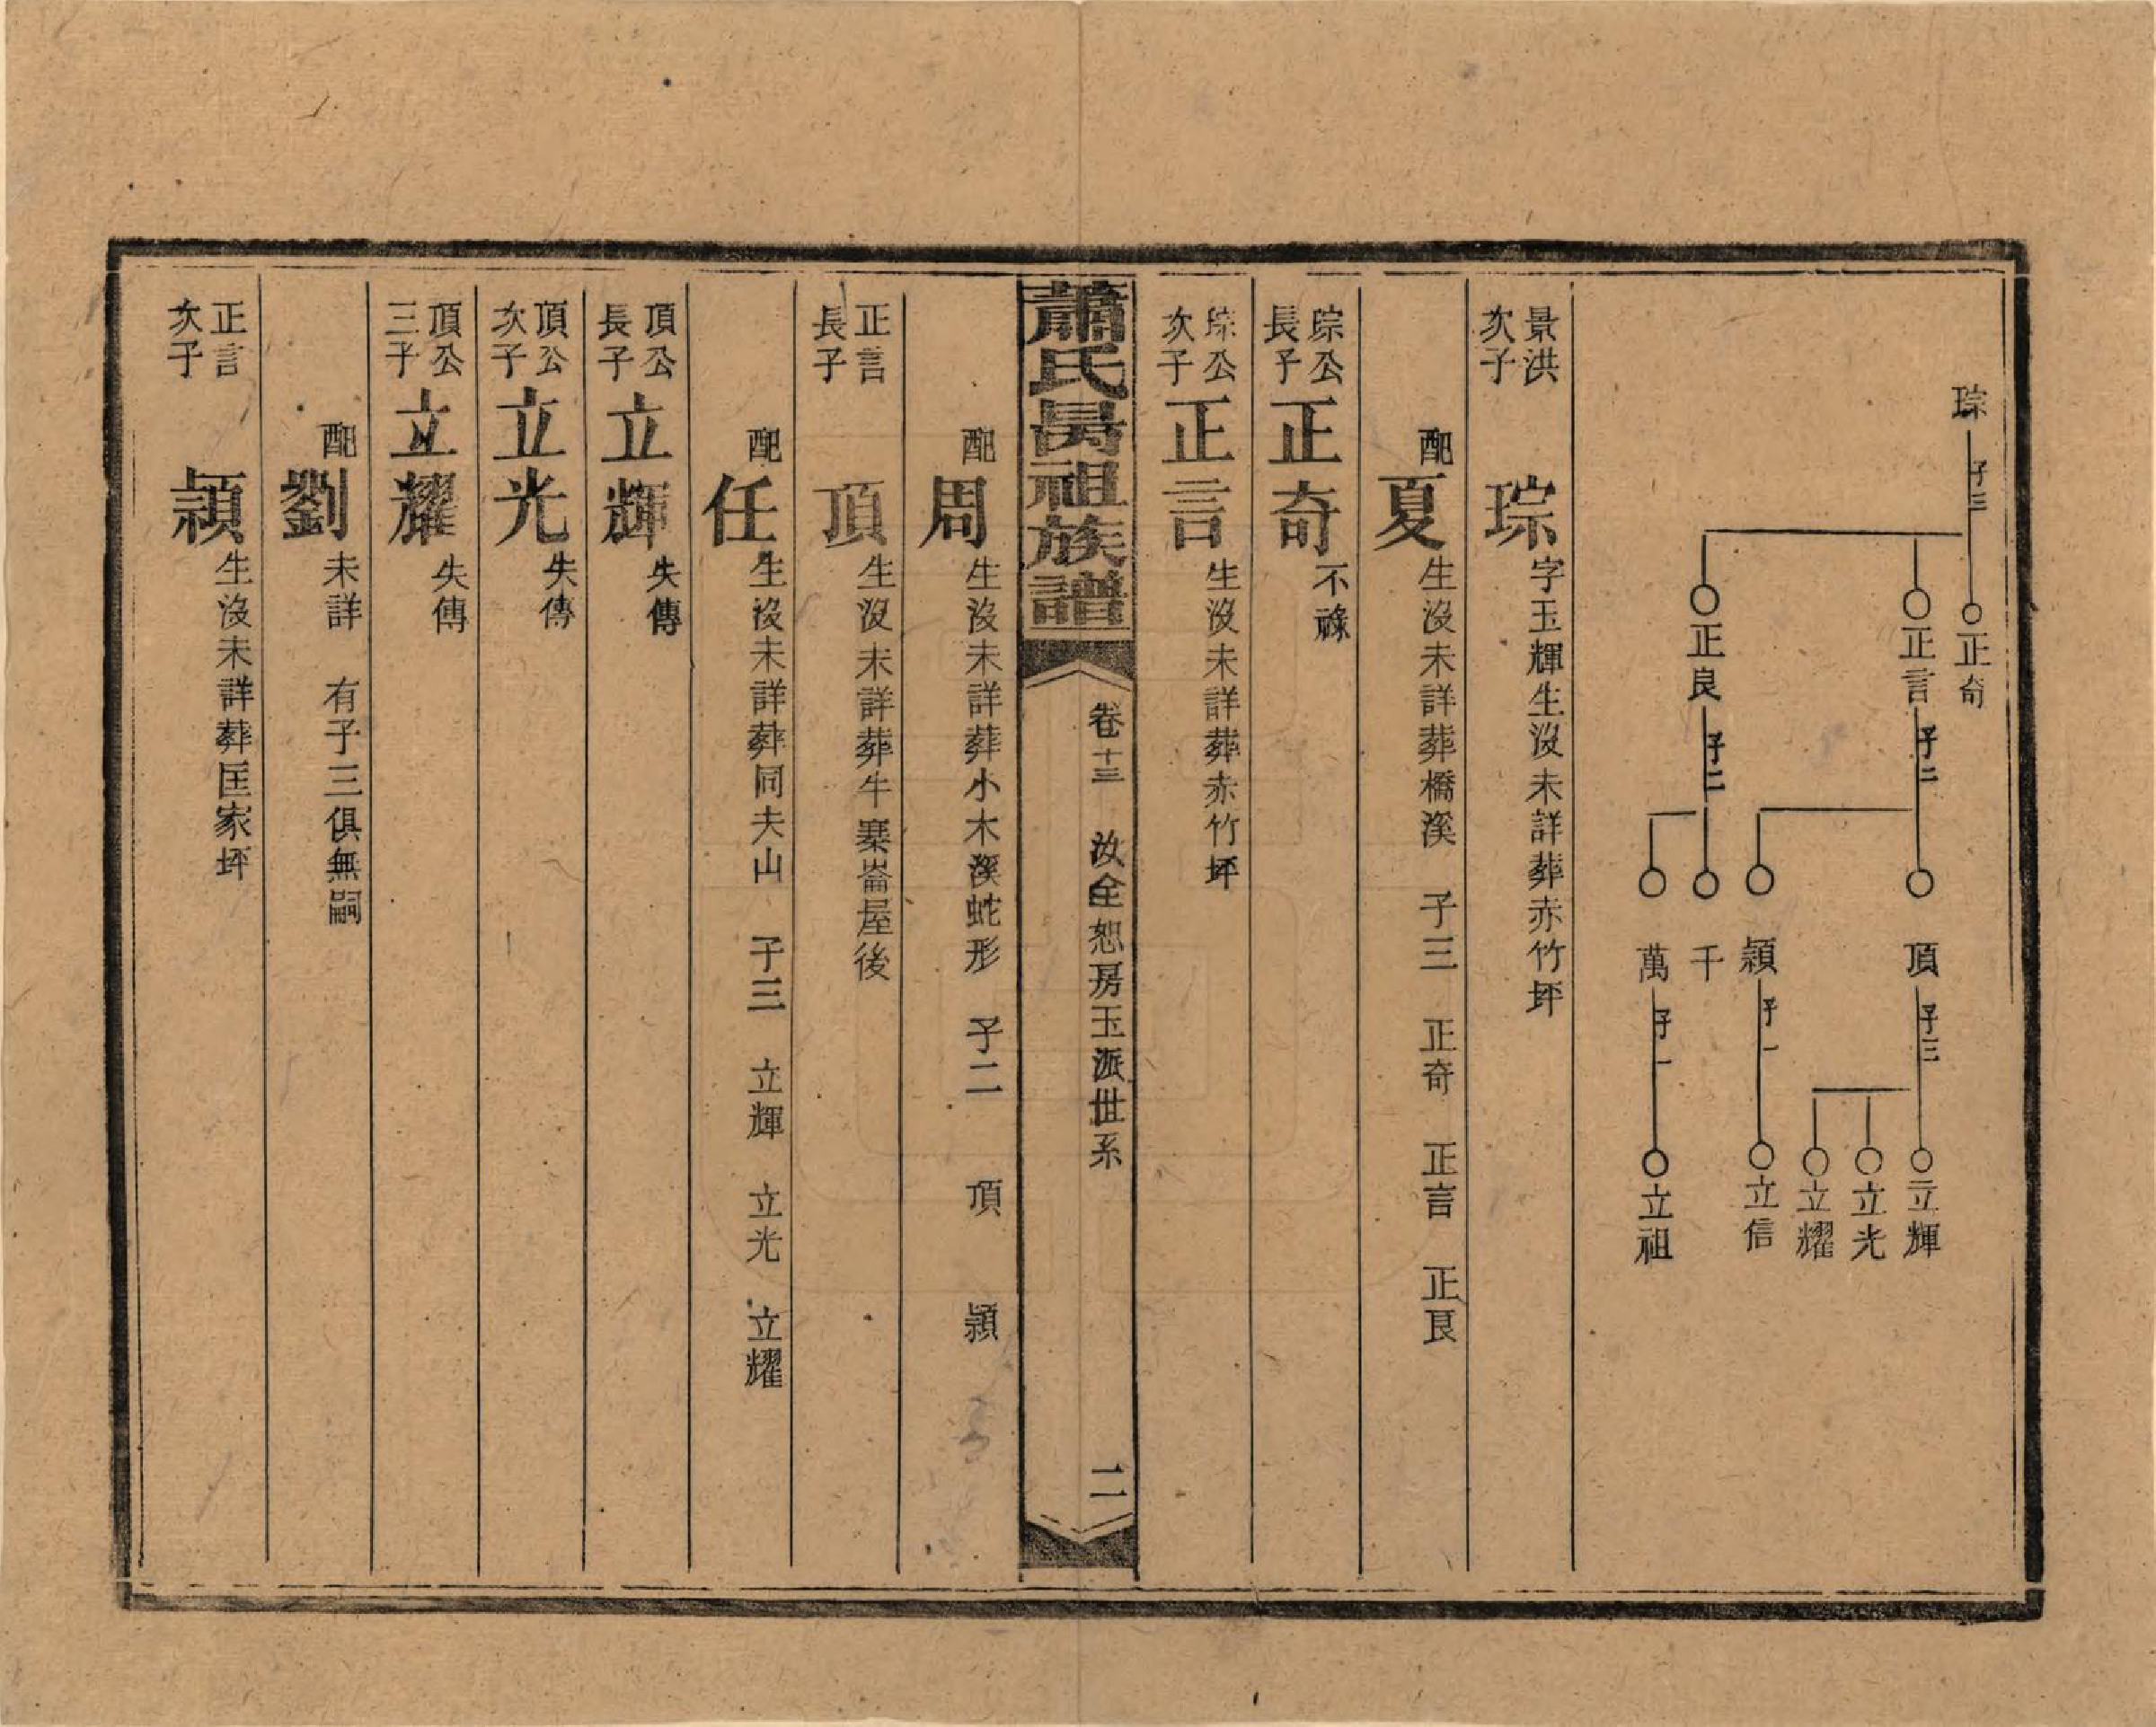 琮 子三
正奇
正言 子二
正良 子二
頂 子三
穎 子一
千
萬 子一
立輝
立光
立耀
立信
立祖
景洪次子 琮 字玉輝生沒未詳葬赤竹坪
配 夏 生沒未詳葬橋溪 子三 正奇 正言 正良
琮公長子 正奇 不祿
琮公次子 正言 生沒未詳葬赤竹坪
蕭氏昺祖族譜 卷十三 汝全恕房玉派世系 二
配 周 生沒未詳葬小木溪蛇形 子二 頂 穎
正言長子 頂 生沒未詳葬牛寨崙屋後
配 任 生沒未詳葬同夫山 子三 立輝 立光 立耀
頂公長子 立輝 失傳
頂公次子 立光 失傳
頂公三子 立耀 失傳
配 劉 未詳 有子三俱無嗣
正言次子 穎 生沒未詳葬匡家坪